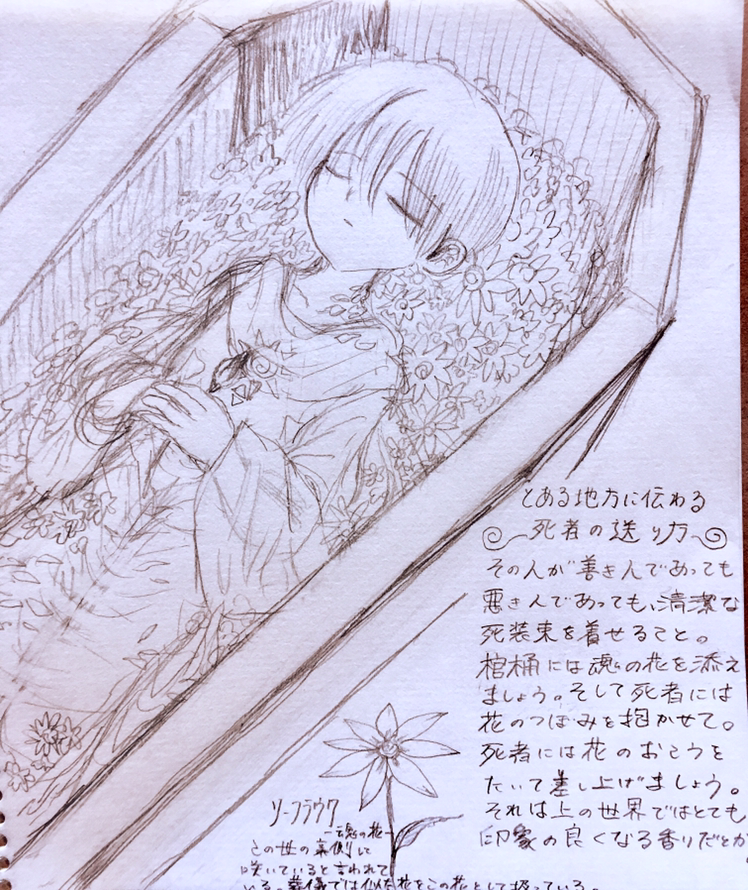 とある地方に伝わる
死者の送り方
その人が善き人であっても
悪き人であっても、清潔な
死装束を着せること。
棺桶には魂の花を添え
ましょう。そして死者には
花のつぼみを抱かせて。
死者には花のおこうを
たいて差し上げましょう。
それは上の世界ではとても
印象の良くなる香りだとか。
ソーフラウワ
―魂の花―
この世の裏側に
咲いていると言われて
いる。葬儀では似た花をこの花として扱っている。